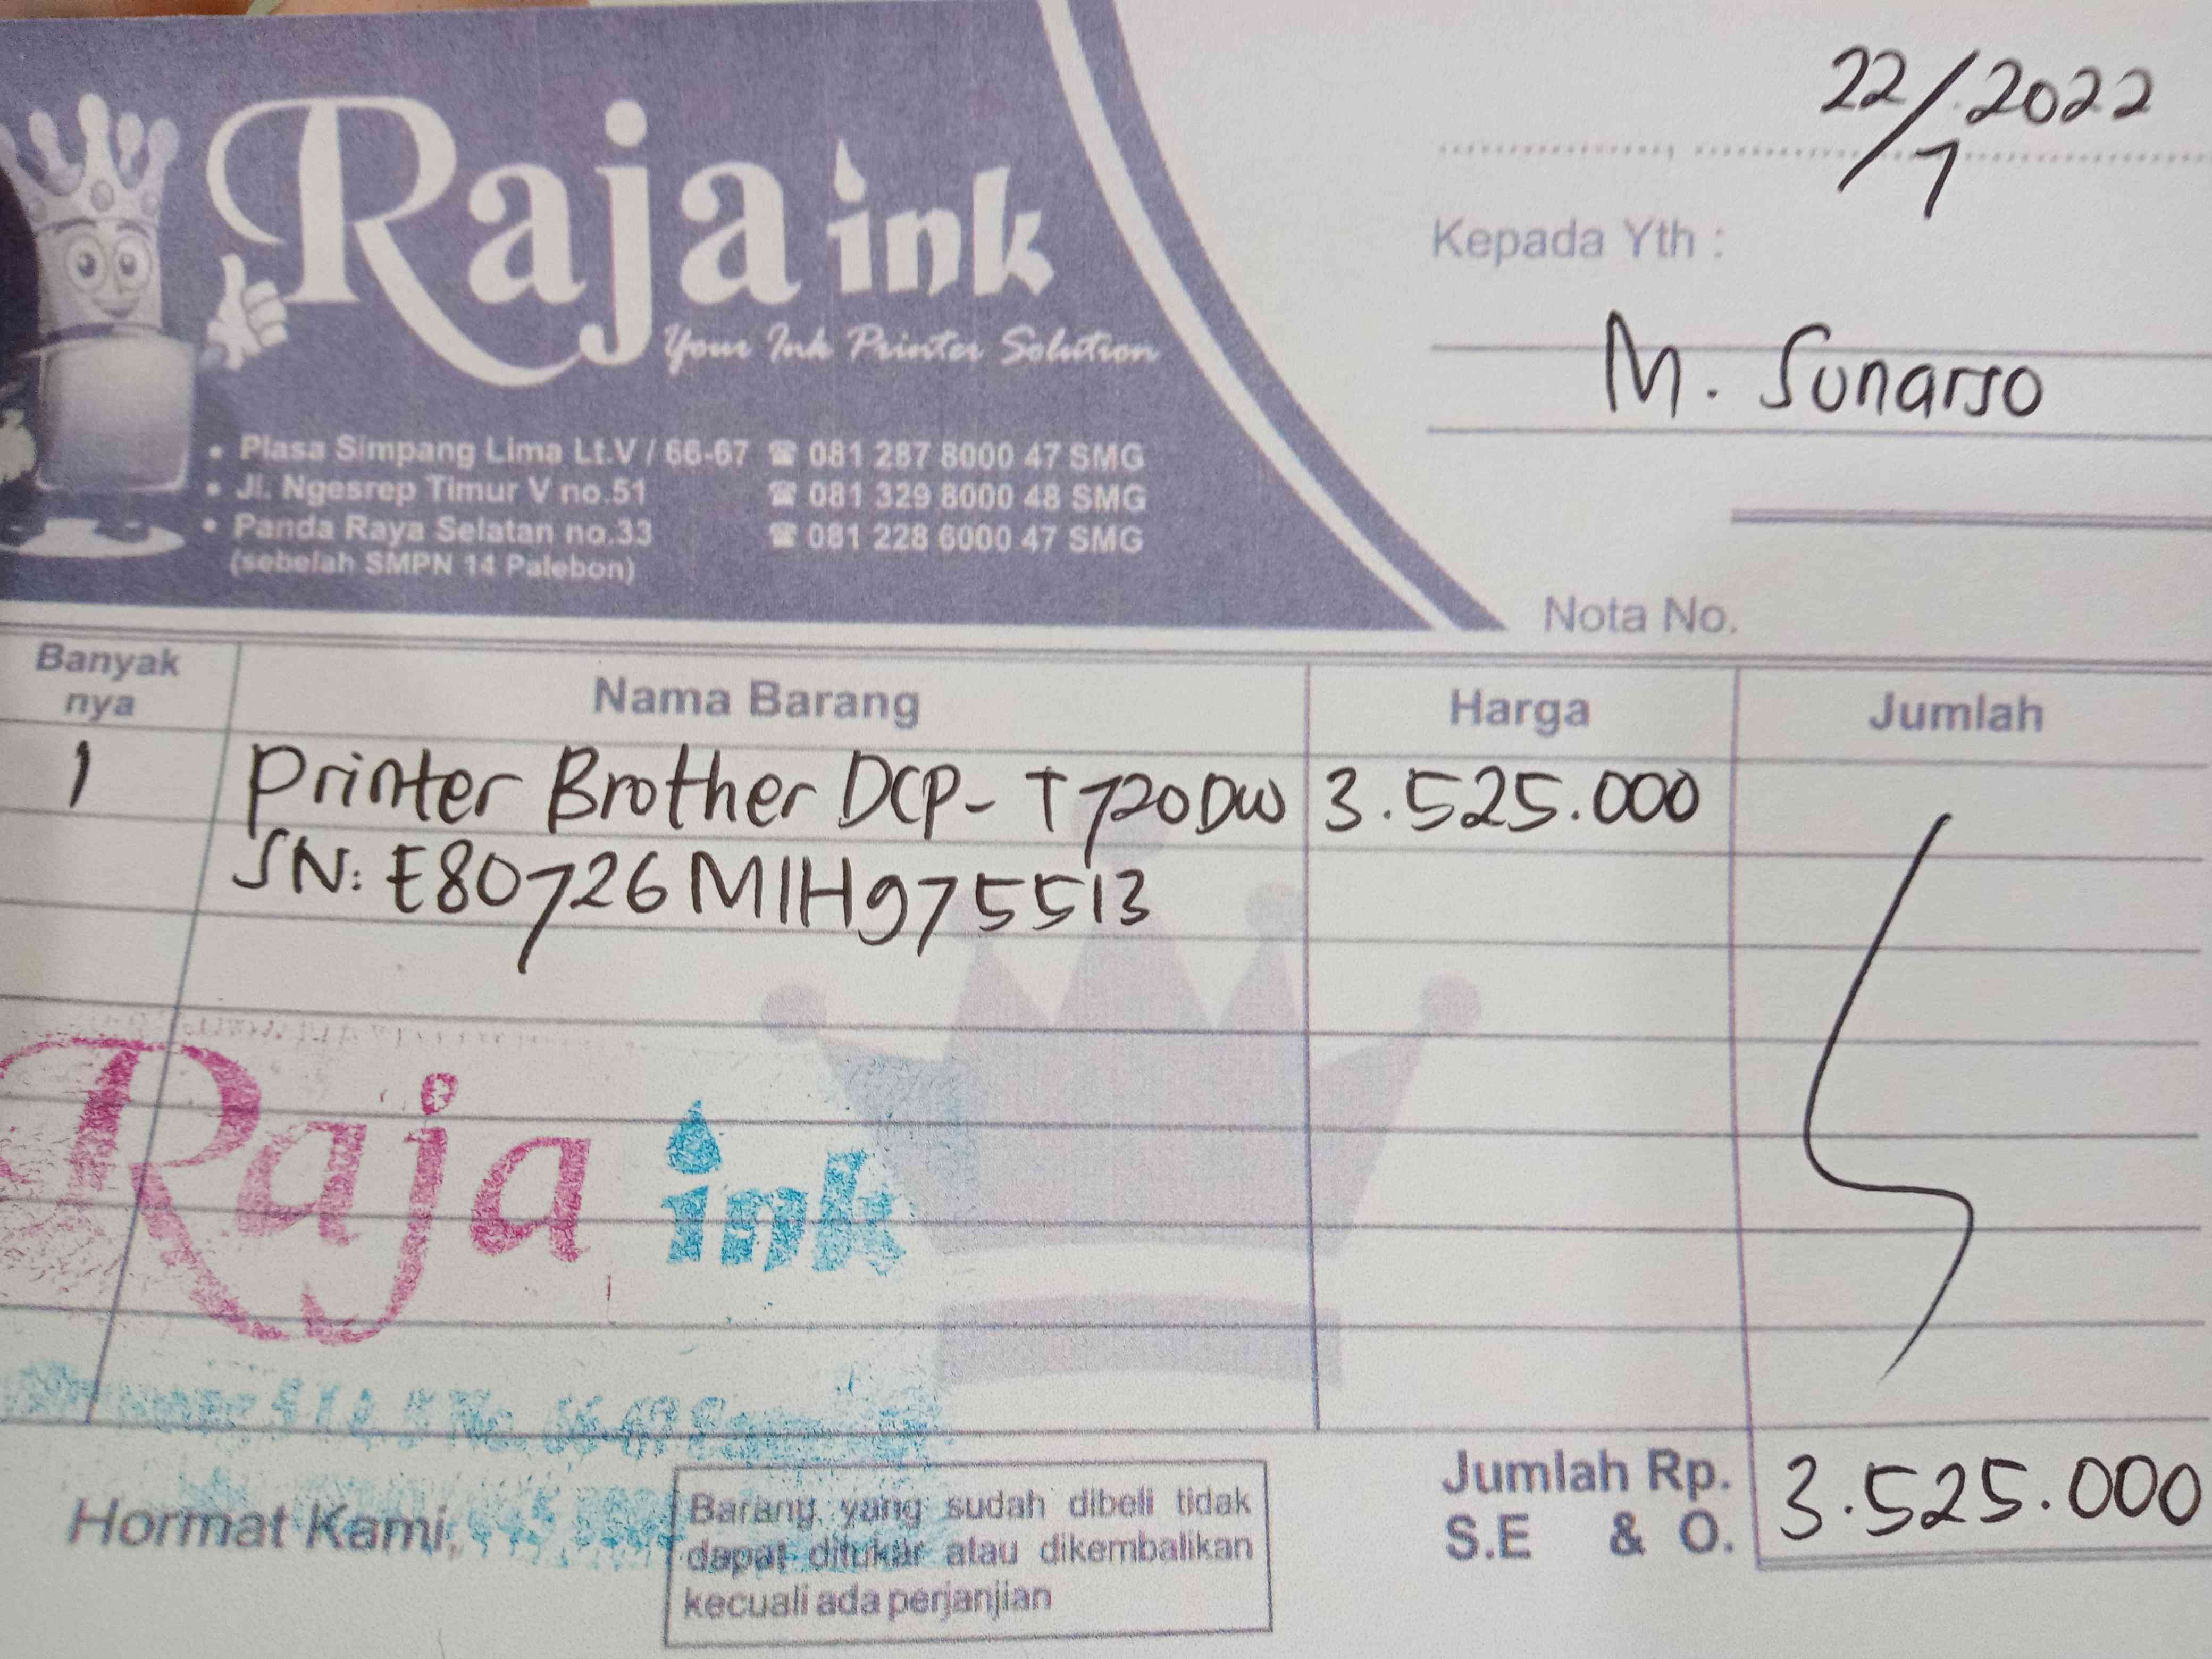 Raja ink
Your Ink Printer Solution
• Plasa Simpang Lima Lt.V / 66-67 ☎ 081 287 8000 47 SMG
• Jl. Ngesrep Timur V no.51 ☎ 081 329 8000 48 SMG
• Panda Raya Selatan no.33 ☎ 081 228 6000 47 SMG
(sebelah SMPN 14 Palebon)
22/7 2022
Kepada Yth :
M. Sunarso
Nota No.
Banyak nya Nama Barang Harga Jumlah
1 Printer Brother DCP-T720DW 3.525.000
SN: E80726M1H975513
Raja ink
No. 66-67
Hormat Kami,
Barang yang sudah dibeli tidak
dapat ditukar atau dikembalikan
kecuali ada perjanjian
Jumlah Rp. 3.525.000
S.E & O.